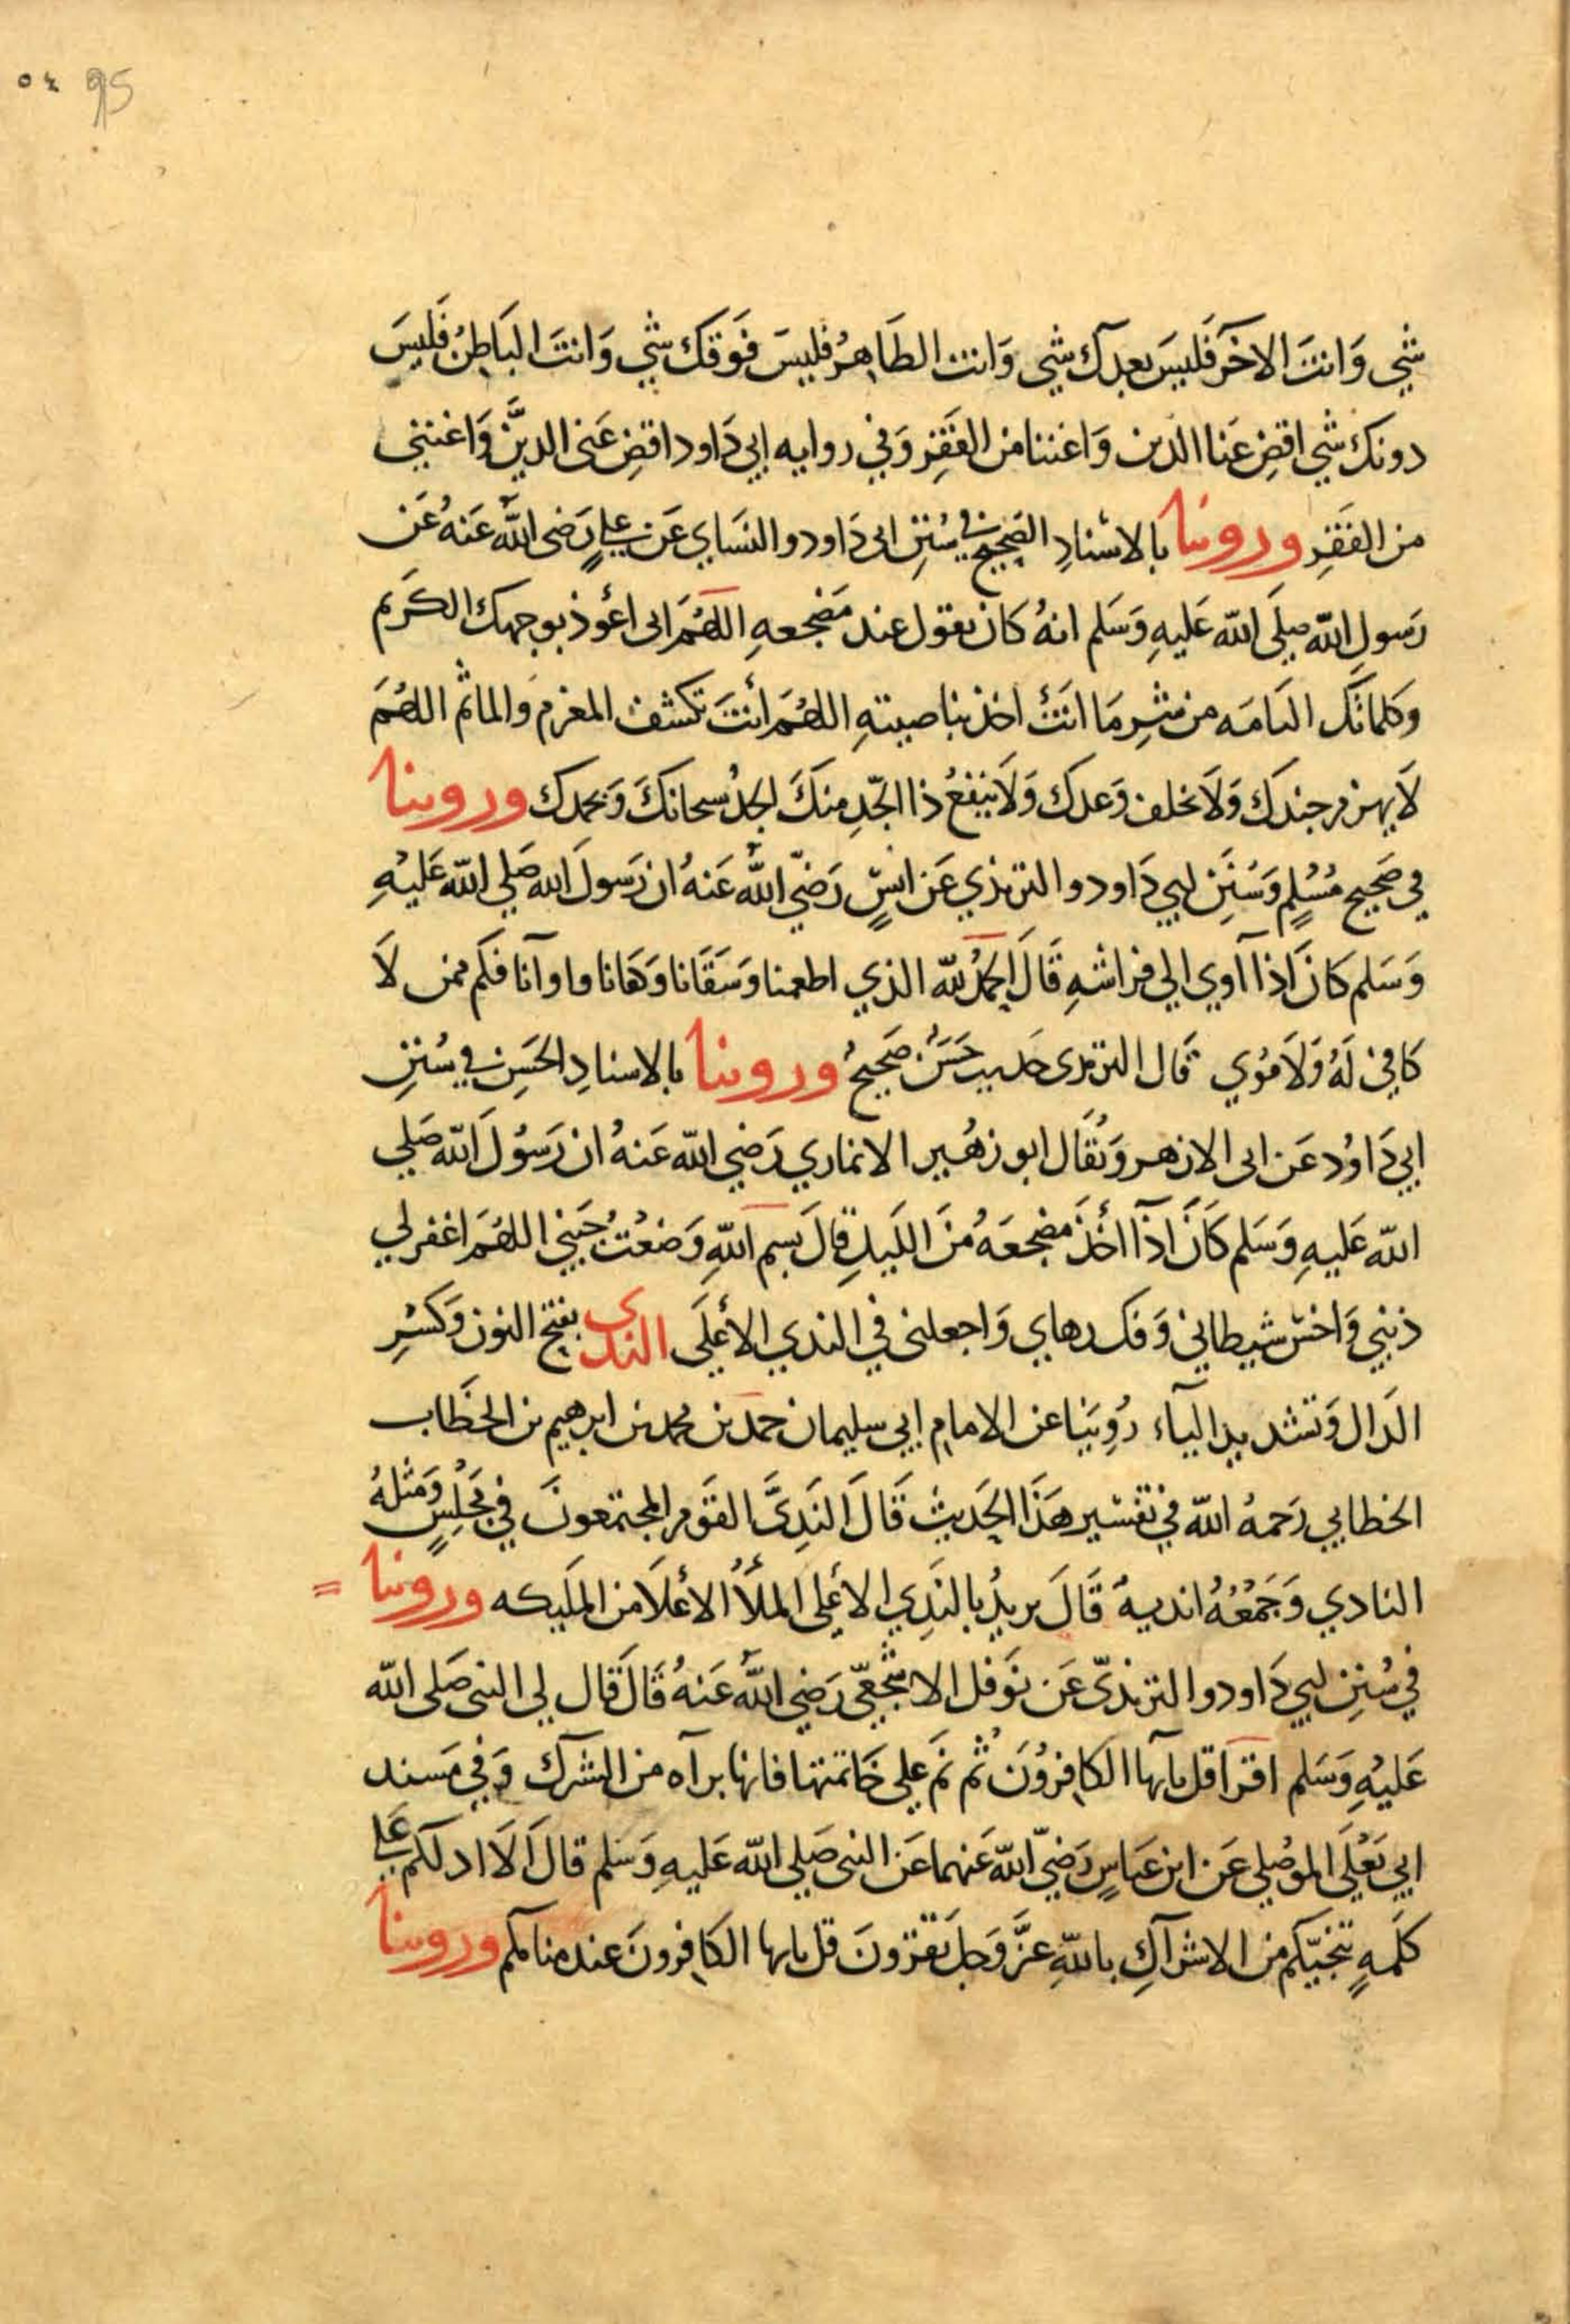 ٥٤ 95
شي وَانتَ الاخَر فَليسَ بعدك شي وَانت الظَاهِرُ فليسَ فَوقكَ شي وَانتَ البَاطِنُ فَليسَ
دونكَ شي اقضِ عَنا الدين وَاغننا من الفَقِر وَفي روايه ابي دَاود اقضِ عَنى الديَّن وَاغنني
من الفَقِر وروينا بالاسْنادِ الصَحِيحِ في سُنِن ابى دَاود والنسَاي عَن عليٍ رَضى اللهُ عَنهُ عَن
رَسولِ اللهِ صلَى الله عَليهِ وَسَلم انهُ كَان يقول عند مَضجعهِ اللهُمَ انى اعُوذ بوجهك الكَريم
وَكلماتكَ التامَه من شرِ مَا انتَ اخذ بناصيتهِ اللهُمَ أنتَ تكشف المغرم وَالماثم اللهُمَ
لَا يهزم جندكَ وَلَا يخلف وَعدكَ وَلَا ينفعُ ذا الجّدِ منكَ الجدُ سبحانكَ وَبحمدك وروينا
في صَحيح مُسُلمٍ وَسُنَن ابي دَاود والترمذي عَن انسٍ رَضيّ اللهُ عَنهُ ان رَسولَ الله صَلي الله عَليْهِ
وَسَلم كَانَ اذا آوي الي فراشهِ قَالَ الحمدُ لله الذي اطعمنا وَسَقَانا وَكفانا واوآنا فكَم ممن لَا
كَافيَ لَهُ وَلَا مُؤي قَال الترمذى حَديث حَسَنُ صَحيحُ وروينا بالاسنادِ الحَسِن في سُننِ
ابي دَاوُد عَن ابى الازهر وَيُقَال ابو زهُير الانماري رَضي الله عَنهُ ان رَسُولَ الله صَلي
الله عَليهِ وَسَلم كَانَ اذَا اخَذَ مَضجعَهُ منَ اللَيلِ قالَ بسم اللهِ وَضعْتُ جَنبي اللهُمَ اغفر لي
ذنبي وَاخسْ شيطاني وَفك رهاي وَاجعلنى في الندي الأعلَى الندى بفتح النون وَكسْرِ
الدَال وَتشديد اليآء رُوينَا عن الامام ابي سليمان حمَد بن محمد بن ابرهيم بن الخطَاب
الخطابي رَحمهُ الله في تفسير هَذَا الحَديث قَالَ النَدِىَّ القَوم المجتمعونَ في مَجْلِسٍ وَمثلهُ
النادي وَجَمْعُهُ اندية قَالَ يريدُ بالنَدِي الاعَلى الملأُ الأعْلَا من الملَيكه وروينا =
في سُننِ ابي دَاود والترمذيّ عَن نوَفل الاشجعّي رَضي اللهُ عَنهُ قَالَ قَال لي النبى صَلى الله
عَليْهِ وَسَلم اقرَا قل يايها الكَافِروُنَ ثُم نَم علي خَاتمتها فانها برآه من الشرك وَفي مَسند
ابي يَعْلَى الموصُلي عَن ابن عبَاسٍ رَضيّ الله عَنهما عَن النبى صَلي الله عَليهِ وَسَلم قالَ الَا ادلكم عَلي
كَلمهٍ تنجيّكم من الاشرآكِ باللهِ عزَّ وَجل تَقرونَ قل يايها الكَافِرونَ عند منامكم وروينا